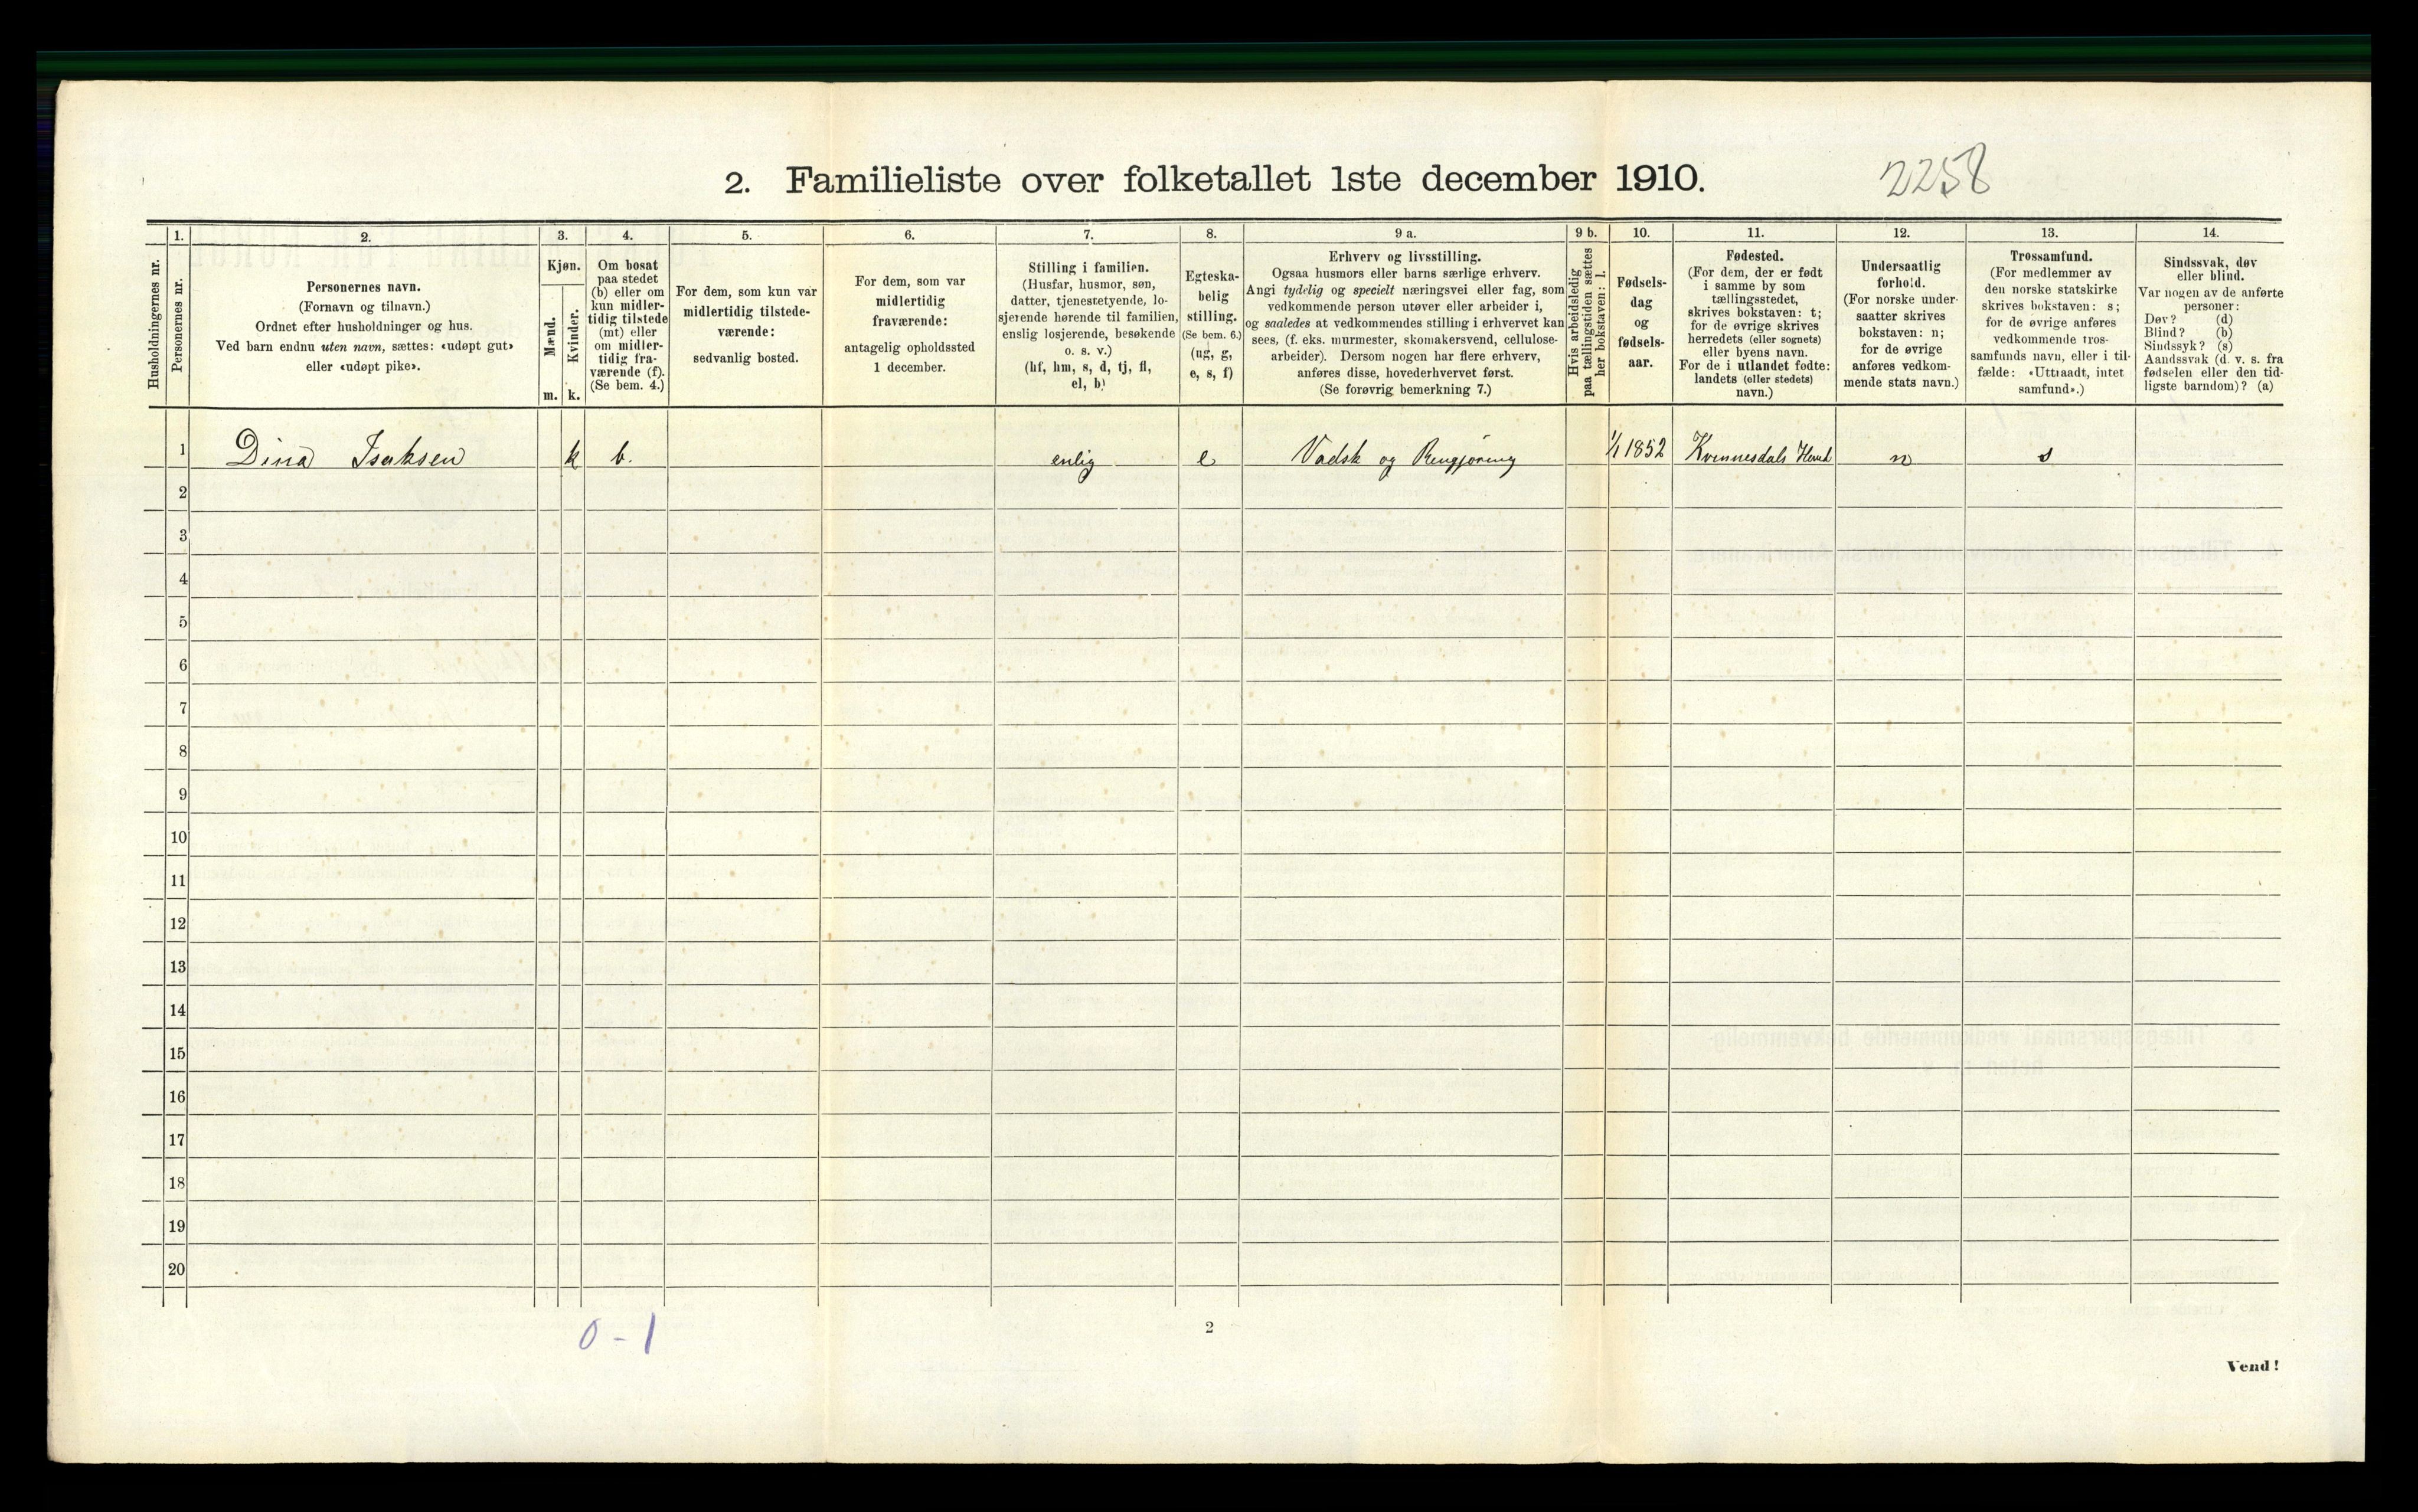 2. Familieliste over folketallet 1ste december 1910.
2258
Husholdningernes nr.
1.
Personernes nr.
2.
Personernes navn.
(Fornavn og tilnavn.)
Ordnet efter husholdninger og hus.
Ved barn endnu uten navn, sættes: «udøpt gut»
eller «udøpt pike».
3.
Kjøn.
Mænd.
Kvinder.
m. k.
4.
Om bosat
paa stedet
(b) eller om
kun midler-
tidig tilstede
(mt) eller
om midler-
tidig fra-
værende (f).
(Se bem. 4.)
5.
For dem, som kun var
midlertidig tilstede-
værende:
sedvanlig bosted.
6.
For dem, som var
midlertidig
fraværende:
antagelig opholdssted
1 december.
7.
Stilling i familien.
(Husfar, husmor, søn,
datter, tjenestetyende, lo-
sjerende hørende til familien,
enslig losjerende, besøkende
o. s. v.)
(hf, hm, s, d, tj, fl,
el, b)
8.
Egteska-
belig
stilling.
(Se bem. 6.)
(ug, g,
e, s, f)
9 a.
Erhverv og livsstilling.
Ogsaa husmors eller barns særlige erhverv.
Angi tydelig og specielt næringsvei eller fag, som
vedkommende person utøver eller arbeider i,
og saaledes at vedkommendes stilling i erhvervet kan
sees, (f. eks. murmester, skomakersvend, cellulose-
arbeider). Dersom nogen har flere erhverv,
anføres disse, hovederhvervet først.
(Se forøvrig bemerkning 7.)
9 b.
Hvis arbeidsledig
paa tællingstiden sættes
her bokstaven: l.
10.
Fødsels-
dag
og
fødsels-
aar.
11.
Fødested.
(For dem, der er født
i samme by som
tællingsstedet,
skrives bokstaven: t;
for de øvrige skrives
herredets (eller sognets)
eller byens navn.
For de i utlandet fødte:
landets (eller stedets)
navn.)
12.
Undersaatlig
forhold.
(For norske under-
saatter skrives
bokstaven: n;
for de øvrige
anføres vedkom-
mende stats navn.)
13.
Trossamfund.
(For medlemmer av
den norske statskirke
skrives bokstaven: s;
for de øvrige anføres
vedkommende tros-
samfunds navn, eller i til-
fælde: «Uttraadt, intet
samfund».)
14.
Sindssvak, døv
eller blind.
Var nogen av de anførte
personer:
Døv? (d)
Blind? (b)
Sindssyk? (s)
Aandssvak (d. v. s. fra
fødselen eller den tid-
ligste barndom)? (a)
1 Dina Isaksen k b. enlig e Vadsk og Rengjøring 1/1 1852 Kvinnesdals Herred n s
2
3
4
5
6
7
8
9
10
11
12
13
14
15
16
17
18
19
20
0-1
2
Vend!